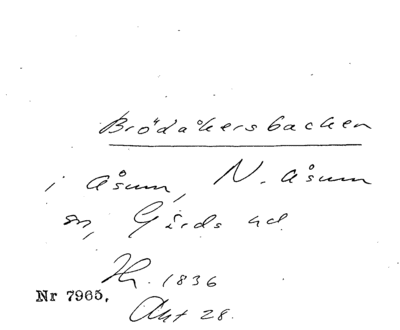 Brödåkersbacken
i Åsum, N. Åsum
sn, Gärds hd
Hr. 1836
Nr 7965.
Akt 28.